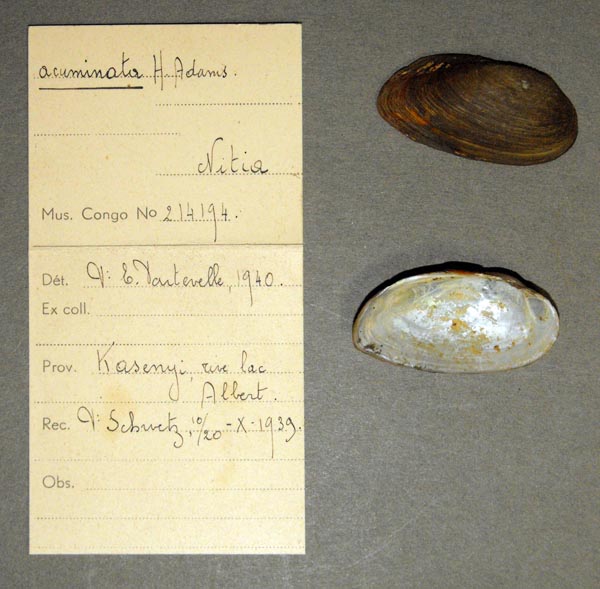 acuminata H. Adams.
Nitia
Mus. Congo No 214194.
Dét. Dr E. Dartevelle, 1940.
Ex coll.
Prov. Kasenyi, rive lac
Albert.
Rec. Dr Schwetz, 10/20-X-1939.
Obs.